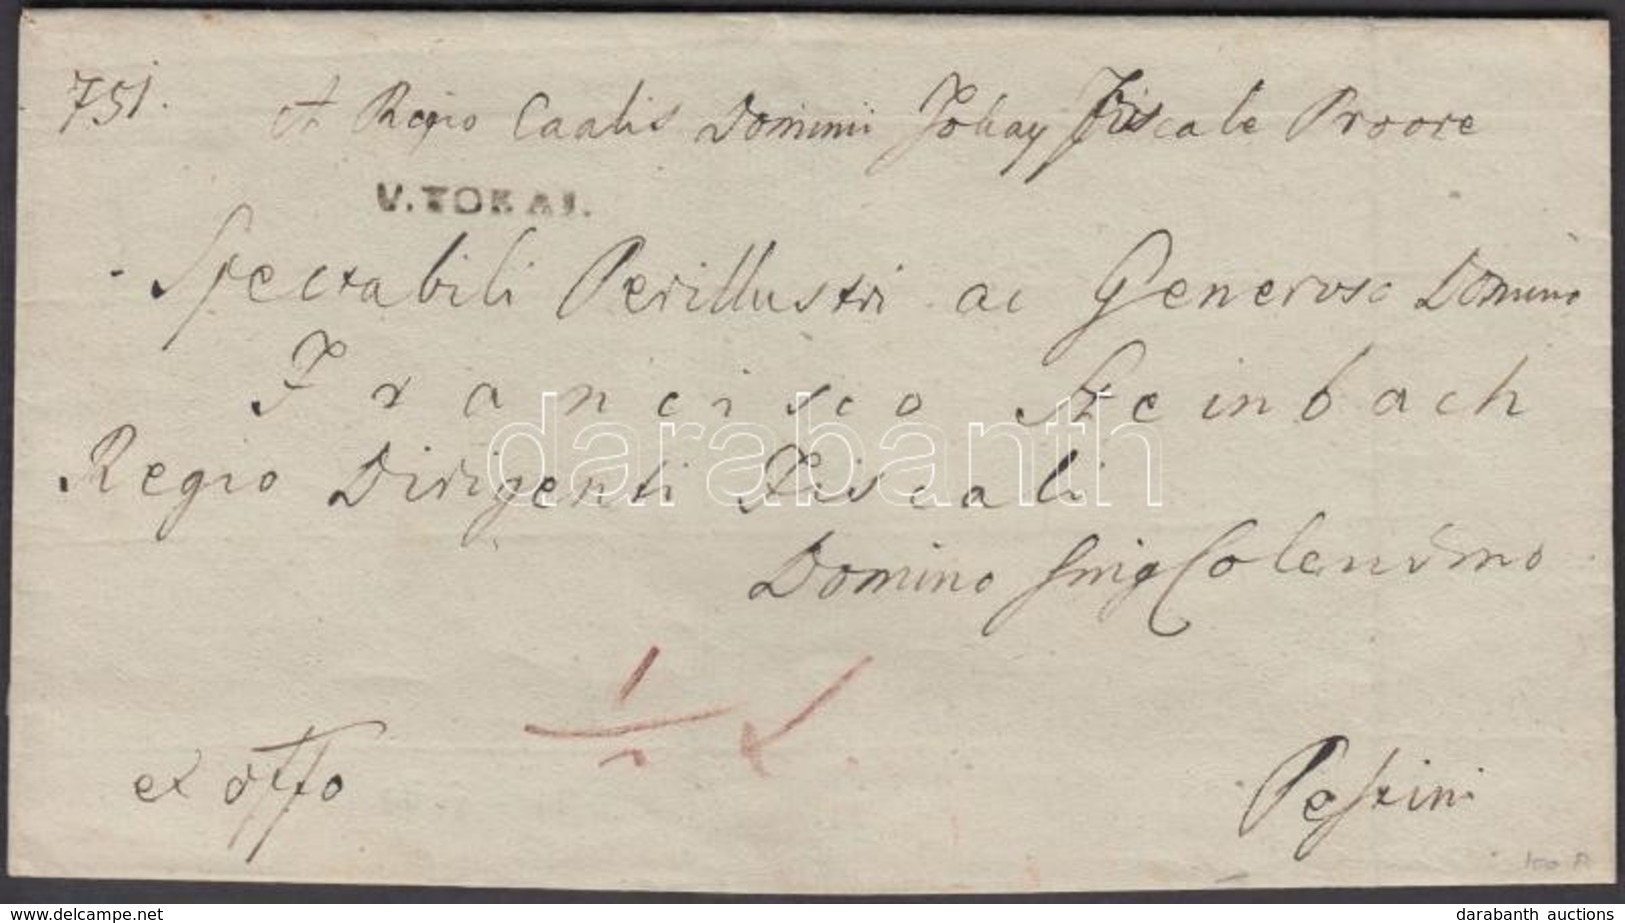 751. A Regio Caalis Dominii Tokay Fiscale Proore
V. TOKAI.
Spectabili Perillustri ac Generoso Domino
Francisco Steinbach
darabanth
Regio Dirigenti Fiscali
Domino Colendmo
1/2
ex offo
Pestini
100 A
www.delcampe.net
darabanth auctions